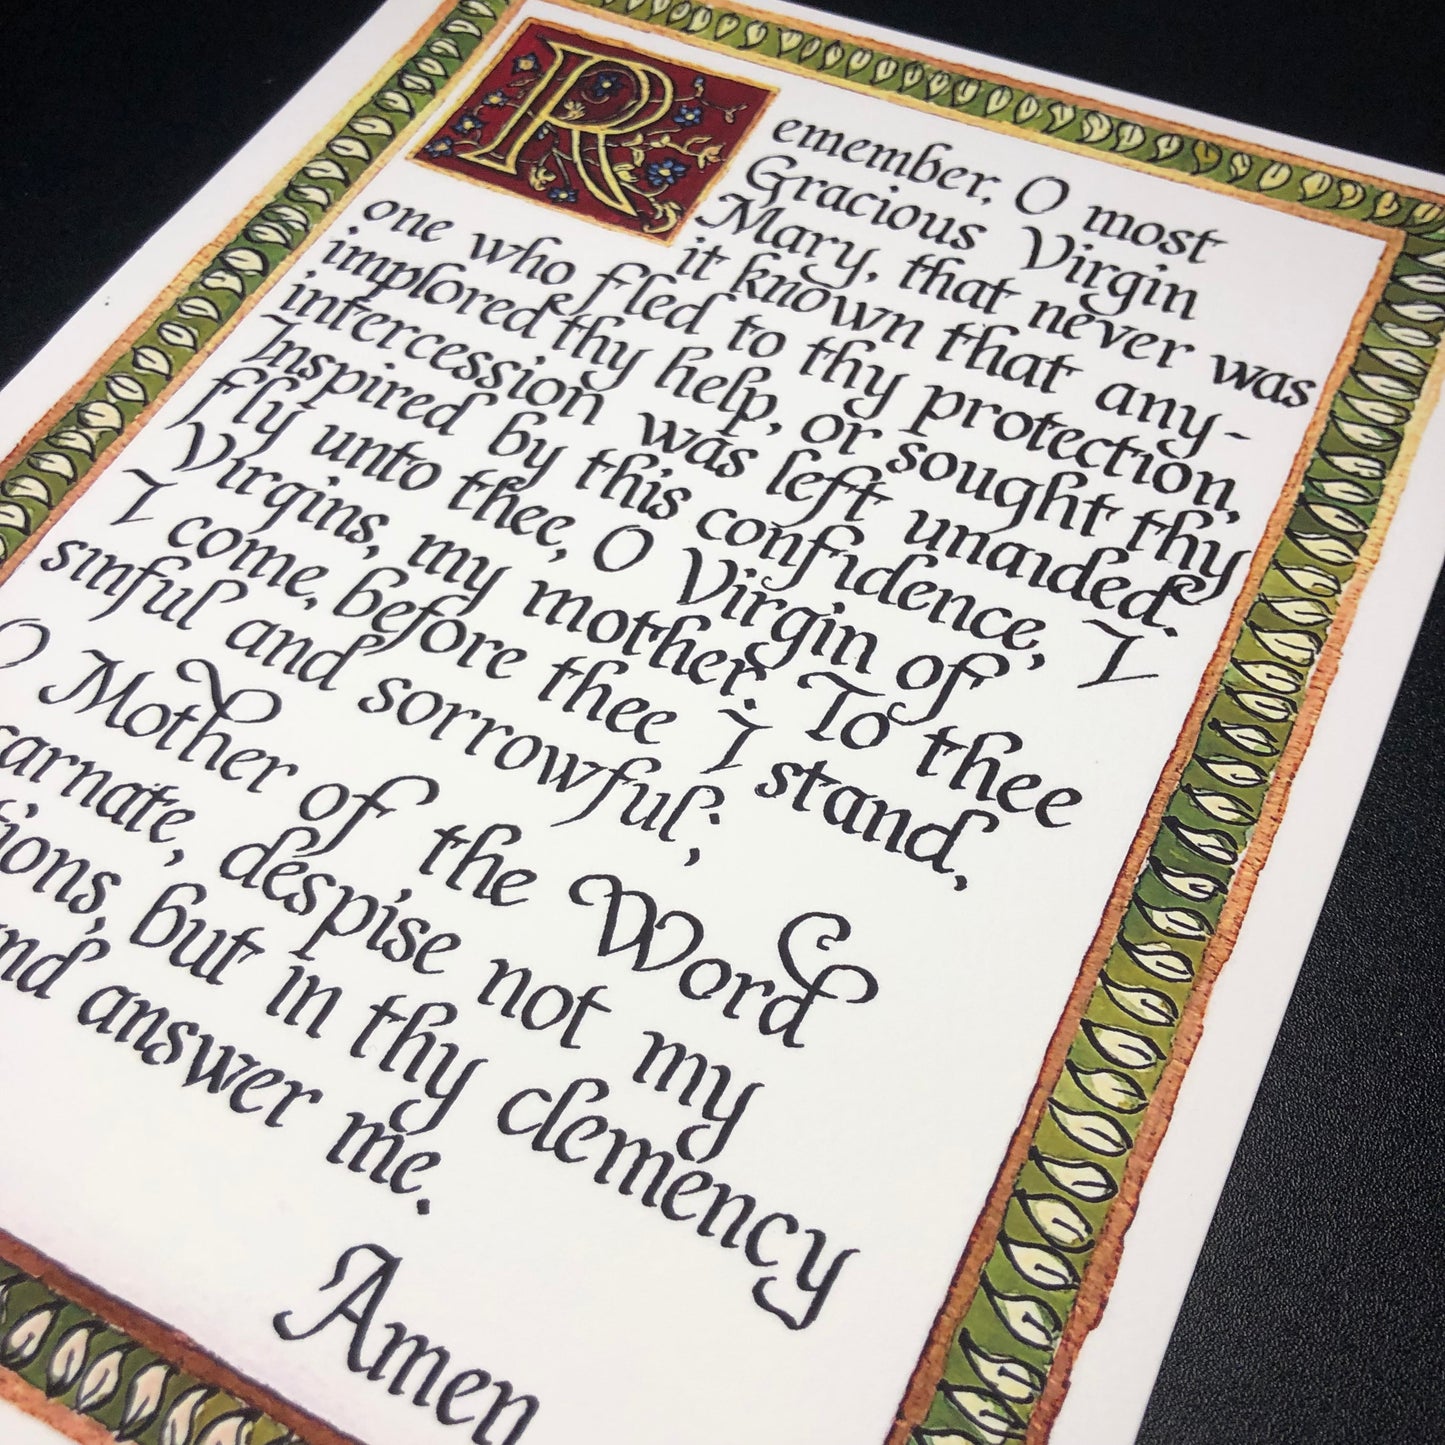 Remember, O most
Gracious Virgin
Mary, that never was
it known that any-
one who fled to thy protection,
implored thy help, or sought thy
intercession was left unaided.
Inspired by this confidence, I
fly unto thee, O Virgin of
Virgins, my mother. To thee
I come, before thee I stand,
sinful and sorrowful;
O Mother of the Word
carnate, despise not my
tions, but in thy clemency
nd answer me.
Amen